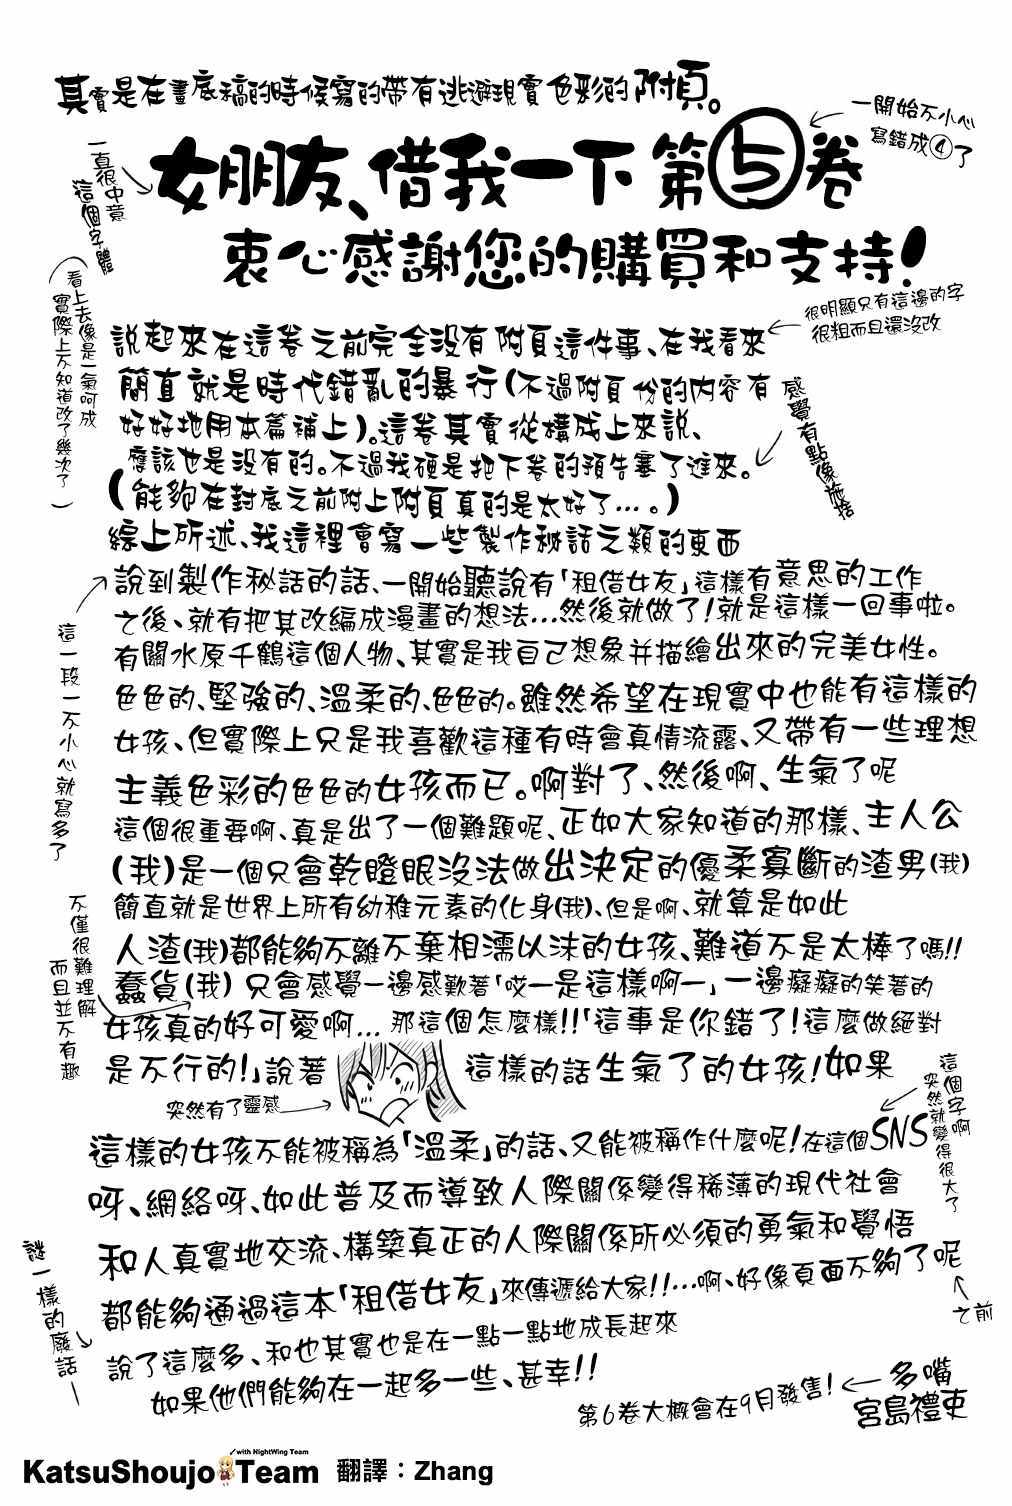 其實是在畫底稿的時候寫的帶有逃避現實色彩的附頁。
一開始不小心
寫錯成④了
一直很中意
這個字體
女朋友、借我一下 第5卷
衷心感謝您的購買和支持!
(看上去像是一氣呵成
實際上不知道改了幾次了)
很明顯只有這邊的字
很粗而且還沒改
說起來在這卷之前完全沒有附頁這件事、在我看來
簡直就是時代錯亂的暴行(不過附頁份的內容有
好好地用本篇補上)。這卷其實從構成上來說、
應該也是沒有的。不過我硬是把下卷的預告塞了進來。
(能夠在封底之前附上附頁真的是太好了...。)
感覺有點像施捨
綜上所述、我這裡會寫一些製作秘話之類的東西
說到製作秘話的話、一開始聽說有「租借女友」這樣有意思的工作
之後、就有把其改編成漫畫的想法...然後就做了!就是這樣一回事啦。
有關水原千鶴這個人物、其實是我自己想象并描繪出來的完美女性。
色色的、堅強的、溫柔的、色色的。雖然希望在現實中也能有這樣的
女孩、但實際上只是我喜歡這種有時會真情流露、又帶有一些理想
主義色彩的色色的女孩而已。啊對了、然後啊、生氣了呢
這個很重要啊、真是出了一個難題呢、正如大家知道的那樣、主人公
(我)是一個只會乾瞪眼沒法做出決定的優柔寡斷的渣男(我)
簡直就是世界上所有幼稚元素的化身(我)、但是啊、就算是如此
人渣(我)都能夠不離不棄相濡以沫的女孩、難道不是太棒了嗎!!
蠢貨(我) 只會感覺一邊感歎著「哎一是這樣啊一」一邊癡癡的笑著的
女孩真的好可愛啊... 那這個怎麼樣!!「這事是你錯了!這麼做絕對
是不行的!」說著 這樣的話生氣了的女孩!如果
這一段一不小心就寫多了
不僅很難理解
而且並不有趣
突然有了靈感
這個字啊
突然就變得很大了
這樣的女孩不能被稱為「溫柔」的話、又能被稱作什麼呢!在這個SNS
呀、網絡呀、如此普及而導致人際關係變得稀薄的現代社會
和人真實地交流、構築真正的人際關係所必須的勇氣和覺悟
都能夠通過這本「租借女友」來傳遞給大家!!...啊、好像頁面不夠了呢
之前
謎一樣的廢話一
說了這麼多、和也其實也是在一點一點地成長起來
如果他們能夠在一起多一些、甚幸!!
第6卷大概會在9月發售!
多嘴
宮島禮吏
with NightWing Team
KatsuShoujo Team 翻譯:Zhang